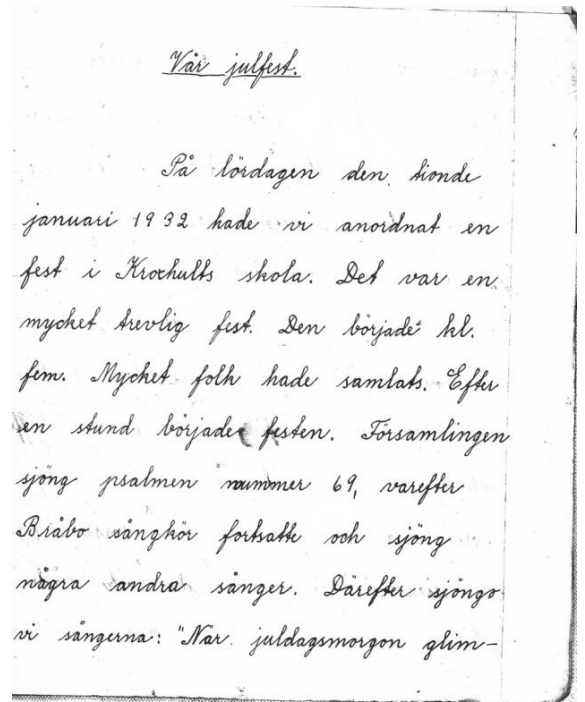 Vår julfest.
På lördagen den tionde
januari 1932 hade vi anordnat en
fest i Krokhults skola. Det var en
mycket trevlig fest. Den började kl.
fem. Mycket folk hade samlats. Efter
en stund började festen. Församlingen
sjöng psalmen nummer 69, varefter
Bråbo sångkör fortsatte och sjöng
några andra sånger. Därefter sjöngo
vi sångerna: "När juldagsmorgon glim-